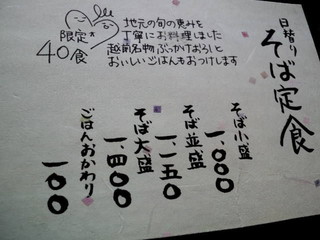 日替り
そば定食
地元の旬の恵みを
丁寧にお料理しました
越前名物ぶっかけおろしと
おいしいごはんもおつけします
限定
40食
そば小盛
一、〇〇〇
そば並盛
一、一五〇
そば大盛
一、四〇〇
ごはんおかわり
一〇〇